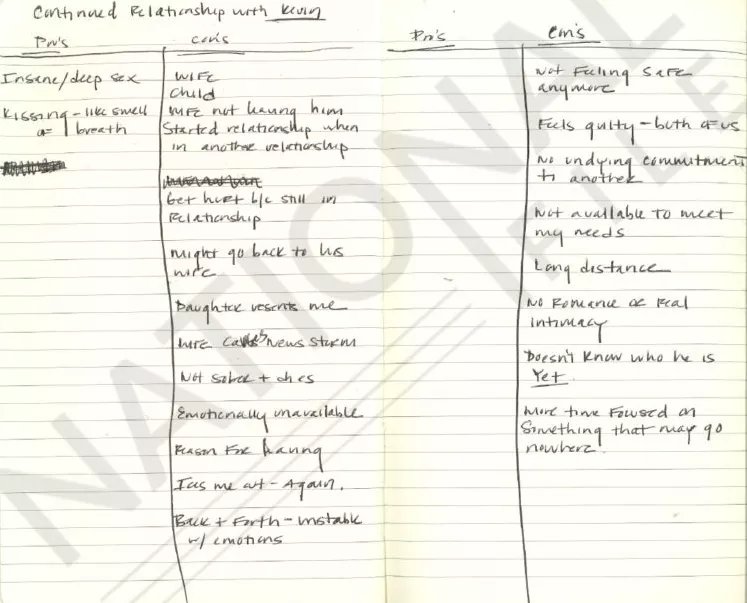 Continued Relationship with Kevin
Pro's
Con's
Insane/deep sex
Kissing - like smell
of breath
WIFE
Child
wife not leaving him
Started relationship when
in another relationship
Get hurt b/c still in
Relationship
Might go back to his
wife
Daughter resents me
wife News storm
Not sober + dies
Emotionally unavailable
Reason for leaving
me out - Again.
Back + Forth - unstable
w/ emotions
Pro's
Con's
Not Feeling safe
anymore
Feels guilty - both of us
No undying commitment
to another
Not available to meet
my needs
Long distance
No Romance or real
intimacy
Doesn't know who he is
Yet.
More time Focused on
Something that may go
nowhere.
NATIONAL
FILE